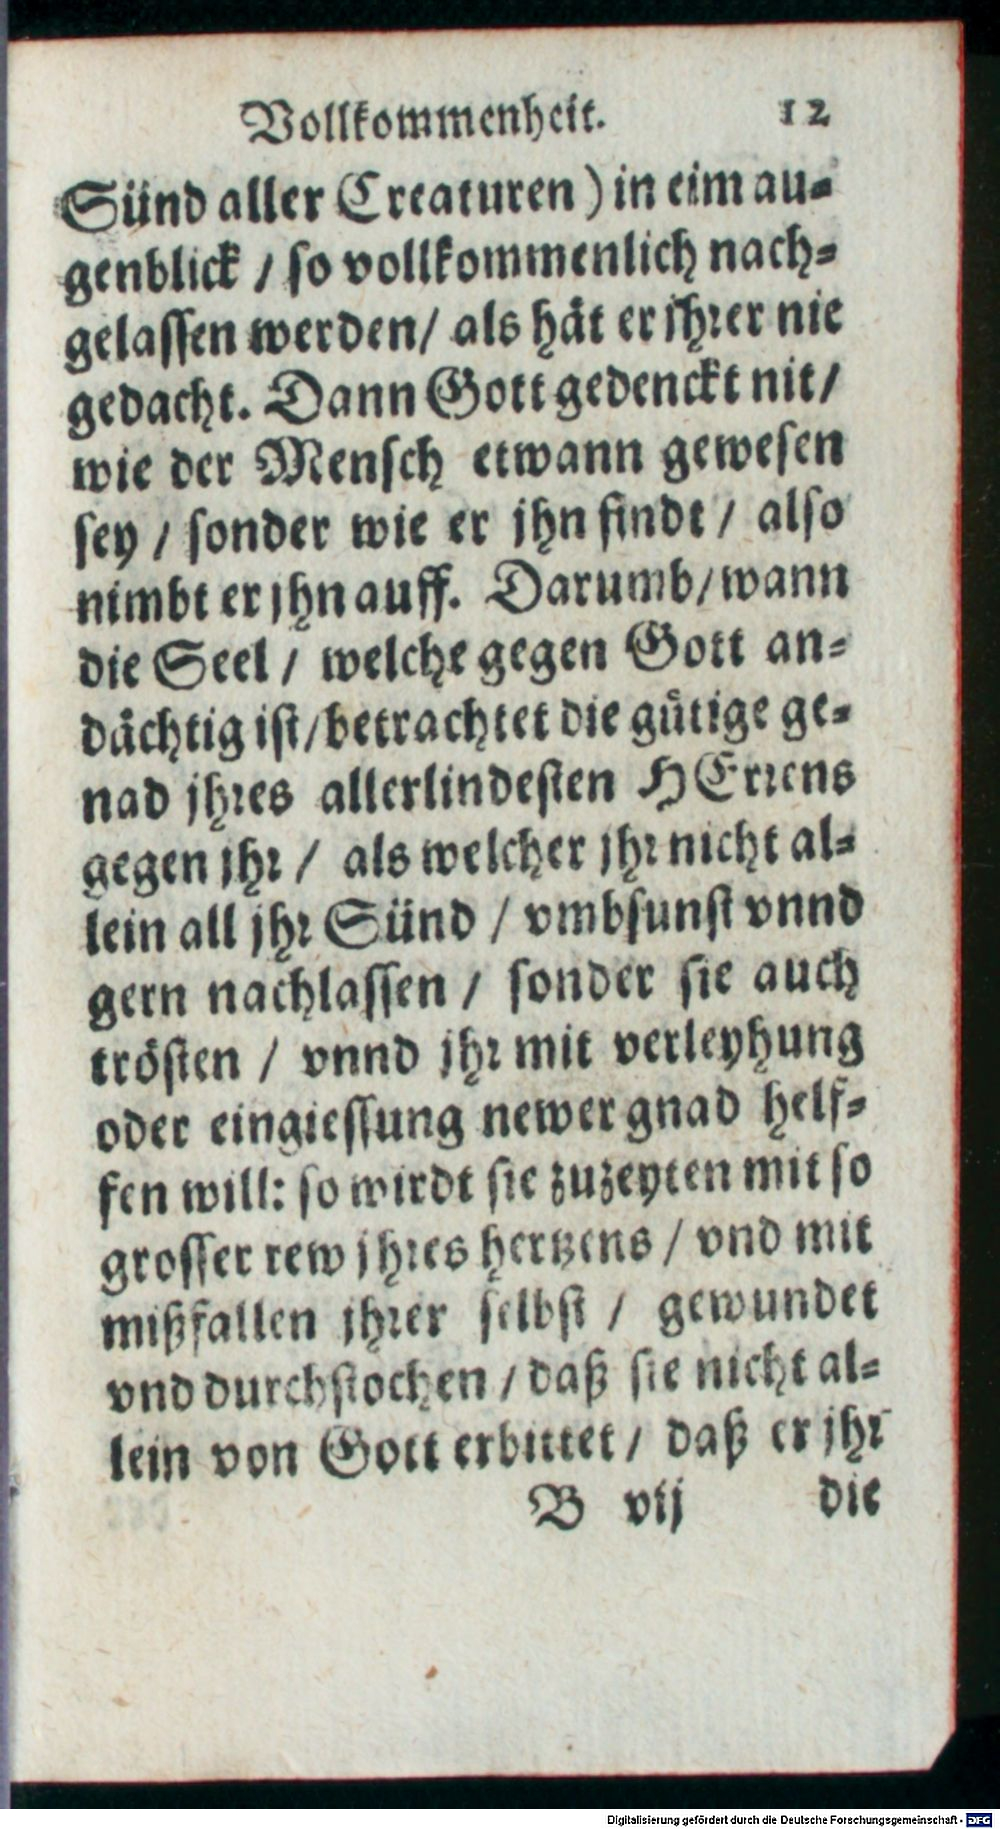 Vollkommenheit. 12
Sünd aller Creaturen) in eim au-
genblick / so vollkommenlich nach-
gelassen werden / als hät er jhrer nie
gedacht. Dann Gott gedenckt nit /
wie der Mensch etwann gewesen
sey / sonder wie er jhn findt / also
nimbt er jhn auff. Darumb / wann
die Seel / welche gegen Gott an-
dächtig ist / betrachtet die gütige ge-
nad jhres allerlindesten HErrens
gegen jhr / als welcher jhr nicht al-
lein all jhr Sünd / vmbsunst vnnd
gern nachlassen / sonder sie auch
trösten / vnnd jhr mit verleyhung
oder eingiessung newer gnad helf-
fen will: so wirdt sie zuzeyten mit so
grosser rew jhres hertzens / vnd mit
mißfallen jhrer selbst / gewundet
vnd durchstochen / daß sie nicht al-
lein von Gott erbittet / daß er jhr
B vij die
Digitalisierung gefördert durch die Deutsche Forschungsgemeinschaft - DFG